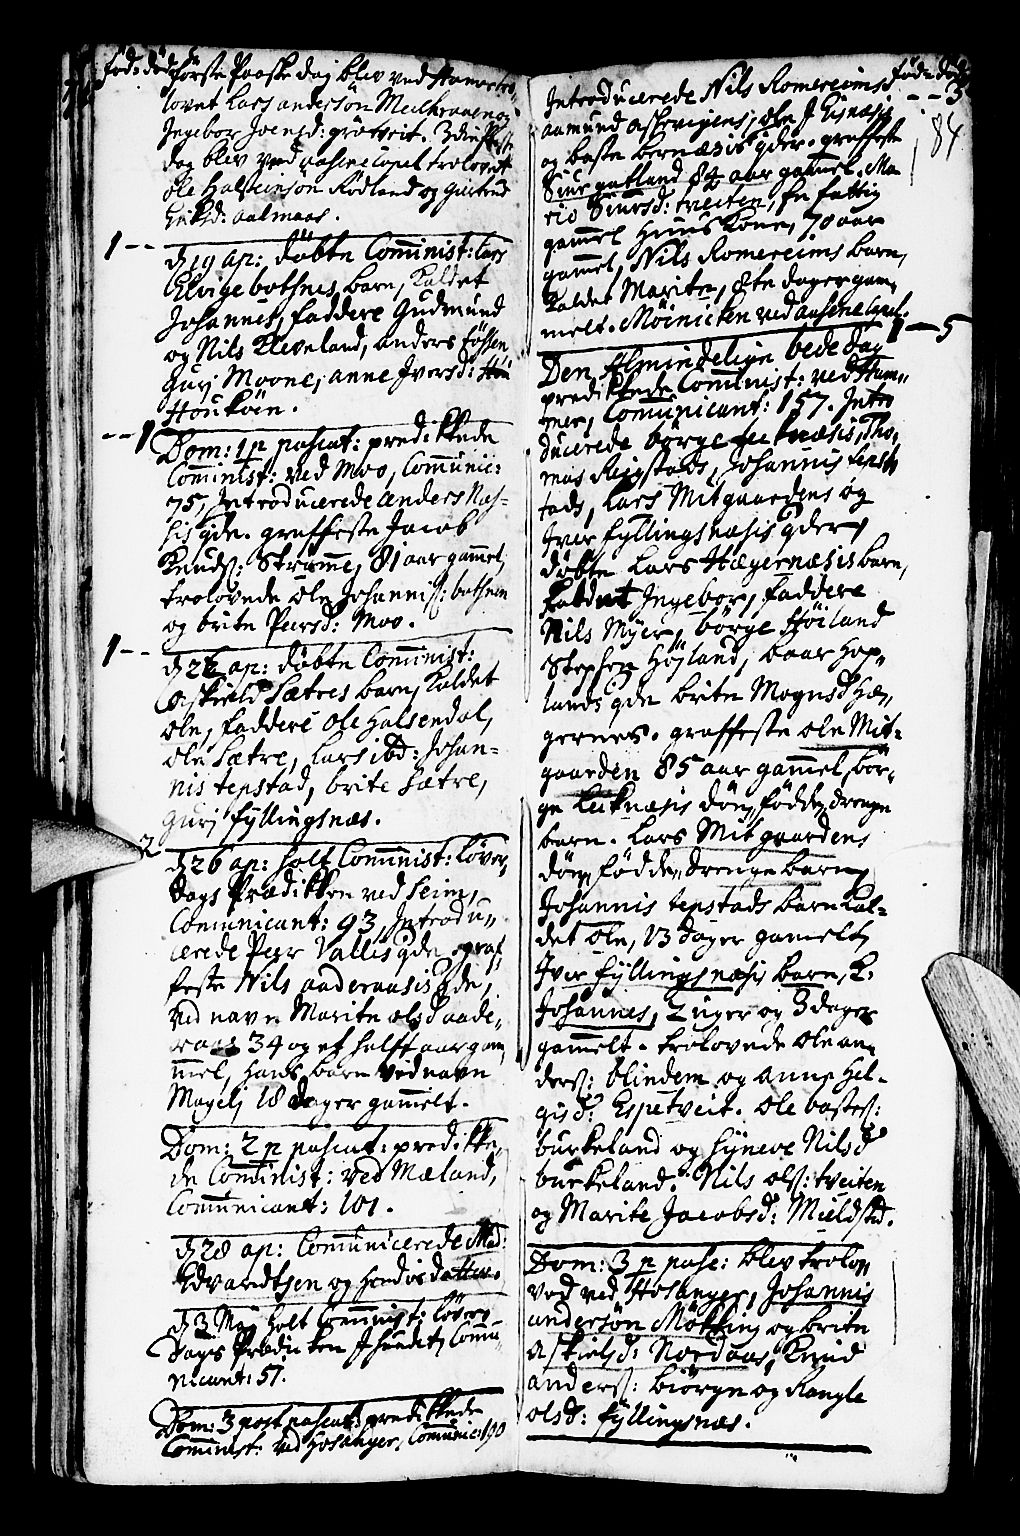 fød: død
første Paaske dag blev ved Hamer tro-
lovet Lars andersøn Mechraaen og
Ingebor Joensd: grøtveit. 3die Paaske
dag blev ved aasene Capel trolovet
Ole Halsteinsøn Rødland og giertrud
Eriksd: aalmaas.
1 - -
d. 19 ap: døbte Comminist: Lars
Elvigebothnes barn, kaldet
Johannes, faddere Gudmund
og Nils Kleveland, anders fossen
Gurj Moone, anne Iversd:
Houkøen.
- - 1
Dom: 1 p pascat: predikkede
Comminist: ved Moo, Communic:
75, Introducerede anders Næs-
sis qde. graffeste Jacob
Knuds: Strømme, 81 aar gammel,
trolovede Ole Johannis: bothnen
og brite Peersd: Moo.
1 - -
ap: døbte Comminist:
Askield Sætres barn, kaldet
Ole, faddere Ole Halsendal,
Ole Sætre, Lars ibd: Johan-
nis tepstad, brite Sætre,
Gurj fyllingsnæs.
2
d. 26 ap: holt Comminist: Løver-
dags Prædikken ved Seim,
Communicant: 93, Introdu-
cerede Peer Vallis qde, graf-
feste Nils aaderaasis qde,
ved navn Marite olsd aade-
raas 34 og et halft aar gam-
mel, Hans barn ved navn
Mageli 18 dager gammelt.
Dom: 2 p pascat: predikke-
de Comminist: ved Mæland,
Communicant: 101.
d. 28 ap: Communicerede Mad:
Edvardtsen og Hendis datter.
d. 3 Maj holt Comminist: Løver-
dags Prædicken J hundet, Commu-
nicant: 57.
Dom: 3 post pascat: predikkede
Comminist: ved Hosanger, Communic: 190
fød: død
- - 3
84
Introducerede Nils Romereims
aamund Askevigens, Ole J Eisnæsis
og baste bernæsis qder. graffeste
Siur gatland 84 aar gammel. Ma-
rio Siursd: tveiten, en fattig
gammel Huus Kone, 70 aar
gammel, Nils Romereims barn,
kaldet Marite, 8te dager gam-
melt. Möenicken ved aasene Capel.
1 - 5
Den Almindelige bede dag
predikkede Comminist: ved Ham-
mer, Communicant: 157. Intro
ducerede börge Leiknæsis, Tho-
mas Reigstads, Johannis teps-
tads, Lars Mitgaardens og
Iver fyllingsnæsis qder,
døbte Lars Hægernæsis barn,
kaldet Ingebor, faddere
Nils Myer, börge Höiland
Stephen Höjland, baar Hop-
lands qde brite Mognsd Hæ-
gernes. graffeste Ole Mit-
gaarden 85 aar gammel, bör-
ge Leiknæsis død fødde drenge
barn. Lars Mitgaardens
død fødde drenge barn,
Johannis tepstads barn kal-
det Ole, 13 dager gamelt,
Iver fyllingsnæsis barn, K:
Johannes, 2 uger og 3 dager
gammelt. trolovede Ole an-
ders: blindem og anne Hel-
gisd: Espetveit. Ole bastes:
burkeland og Synneve Nilsd
burkeland. Nils ols: tveiten
og Marite Jacobsd: Mieldstad.
Dom: 3 p pasc: blev trolo-
ved ved Hosanger, Johannis
andersøn Møkking og brite
Askielsd: Nordaas, Knud
anders: biörge og Rangle
olsd: fyllingsnæs.